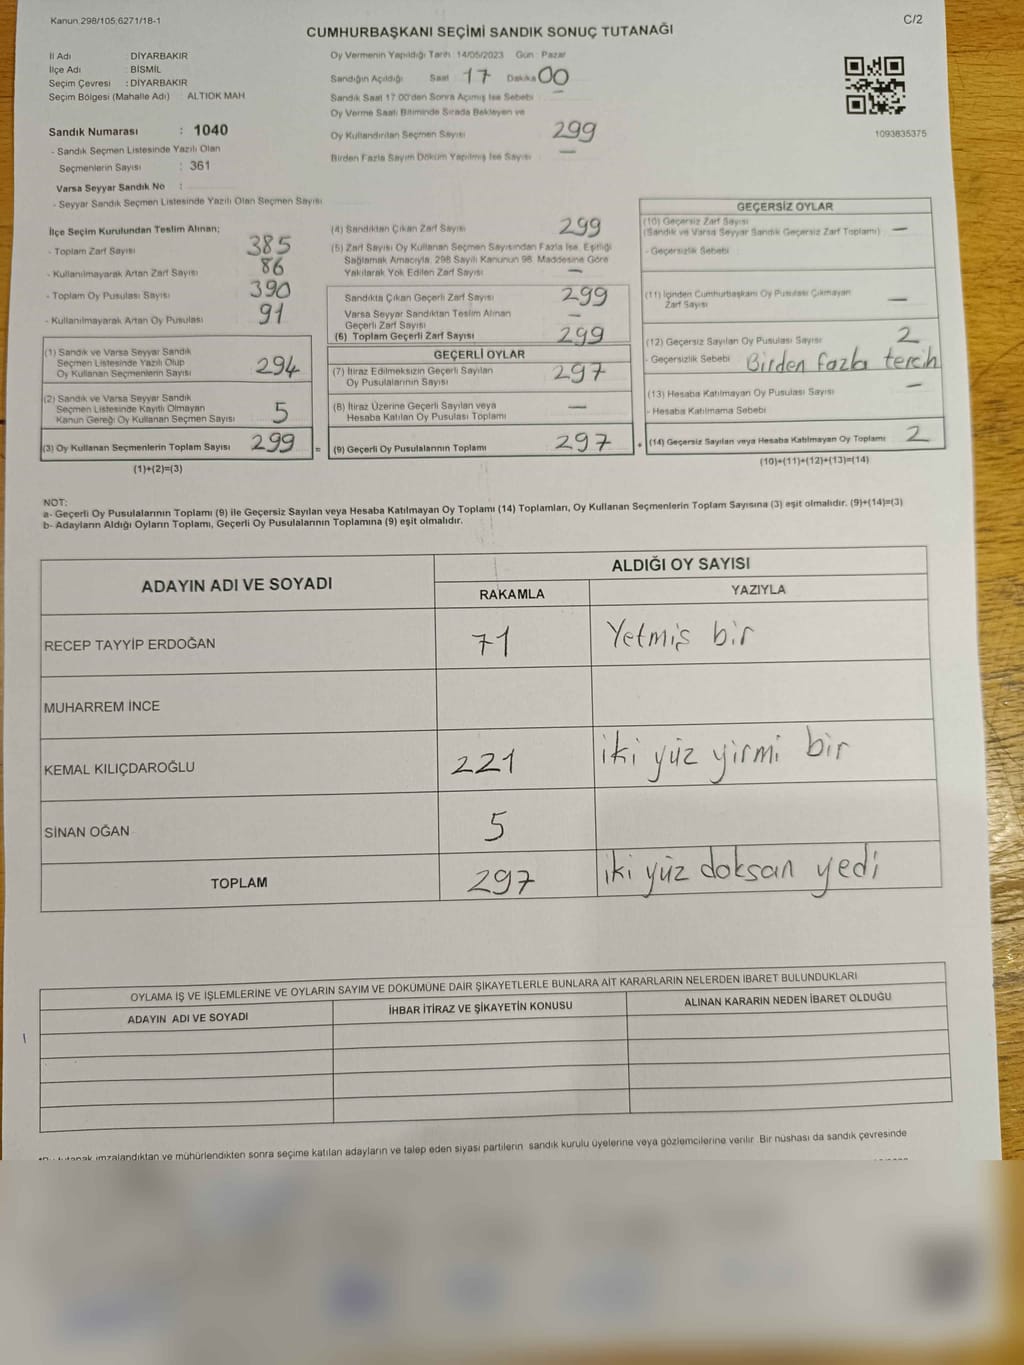 Kanun 298/105,6271/18-1
C/2
CUMHURBAŞKANI SEÇİMİ SANDIK SONUÇ TUTANAĞI
İl Adı : DİYARBAKIR
İlçe Adı : BİSMİL
Seçim Çevresi : DİYARBAKIR
Seçim Bölgesi (Mahalle Adı) : ALTIOK MAH
Sandık Numarası : 1040
- Sandık Seçmen Listesinde Yazılı Olan
Seçmenlerin Sayısı : 361
Varsa Seyyar Sandık No :
- Seyyar Sandık Seçmen Listesinde Yazılı Olan Seçmen Sayısı
Oy Vermenin Yapıldığı Tarih : 14/05/2023 Gün : Pazar
Sandığın Açıldığı Saat 17 Dakika 00
Sandık Saat 17:00'den Sonra Açılmış İse Sebebi —
Oy Verme Saati Bitiminde Sırada Bekleyen ve
Oy Kullandırılan Seçmen Sayısı 299
Birden Fazla Sayım Döküm Yapılmış İse Sayısı —
1093835375
İlçe Seçim Kurulundan Teslim Alınan;
- Toplam Zarf Sayısı 385
- Kullanılmayarak Artan Zarf Sayısı 86
- Toplam Oy Pusulası Sayısı 390
- Kullanılmayarak Artan Oy Pusulası 91
(1) Sandık ve Varsa Seyyar Sandık
Seçmen Listesinde Yazılı Olup
Oy Kullanan Seçmenlerin Sayısı 294
(2) Sandık ve Varsa Seyyar Sandık
Seçmen Listesinde Kayıtlı Olmayan
Kanun Gereği Oy Kullanan Seçmen Sayısı 5
(3) Oy Kullanan Seçmenlerin Toplam Sayısı 299 =
(1)+(2)=(3)
(4) Sandıktan Çıkan Zarf Sayısı 299
(5) Zarf Sayısı Oy Kullanan Seçmen Sayısından Fazla İse, Eşitliği
Sağlamak Amacıyla, 298 Sayılı Kanunun 98. Maddesine Göre
Yakılarak Yok Edilen Zarf Sayısı —
Sandıkta Çıkan Geçerli Zarf Sayısı 299
Varsa Seyyar Sandıktan Teslim Alınan
Geçerli Zarf Sayısı
(6) Toplam Geçerli Zarf Sayısı 299
GEÇERLİ OYLAR
(7) İtiraz Edilmeksizin Geçerli Sayılan
Oy Pusulalarının Sayısı 297
(8) İtiraz Üzerine Geçerli Sayılan veya
Hesaba Katılan Oy Pusulası Toplamı —
(9) Geçerli Oy Pusulalarının Toplamı 297 +
GEÇERSİZ OYLAR
(10) Geçersiz Zarf Sayısı
(Sandık ve Varsa Seyyar Sandık Geçersiz Zarf Toplamı) —
- Geçersizlik Sebebi
(11) İçinden Cumhurbaşkanı Oy Pusulası Çıkmayan
Zarf Sayısı —
(12) Geçersiz Sayılan Oy Pusulası Sayısı 2
- Geçersizlik Sebebi Birden fazla tercih
(13) Hesaba Katılmayan Oy Pusulası Sayısı —
- Hesaba Katılmama Sebebi
(14) Geçersiz Sayılan veya Hesaba Katılmayan Oy Toplamı 2
(10)+(11)+(12)+(13)=(14)
NOT:
a- Geçerli Oy Pusulalarının Toplamı (9) ile Geçersiz Sayılan veya Hesaba Katılmayan Oy Toplamı (14) Toplamları, Oy Kullanan Seçmenlerin Toplam Sayısına (3) eşit olmalıdır. (9)+(14)=(3)
b- Adayların Aldığı Oyların Toplamı, Geçerli Oy Pusulalarının Toplamına (9) eşit olmalıdır.
ADAYIN ADI VE SOYADI
ALDIĞI OY SAYISI
RAKAMLA YAZIYLA
RECEP TAYYİP ERDOĞAN 71 Yetmiş bir
MUHARREM İNCE
KEMAL KILIÇDAROĞLU 221 iki yüz yirmi bir
SİNAN OĞAN 5
TOPLAM 297 iki yüz doksan yedi
OYLAMA İŞ VE İŞLEMLERİNE VE OYLARIN SAYIM VE DÖKÜMÜNE DAİR ŞİKAYETLERLE BUNLARA AİT KARARLARIN NELERDEN İBARET BULUNDUKLARI
ADAYIN ADI VE SOYADI İHBAR İTİRAZ VE ŞİKAYETİN KONUSU ALINAN KARARIN NEDEN İBARET OLDUĞU
imzalandıktan ve mühürlendikten sonra seçime katılan adayların ve talep eden siyasi partilerin sandık kurulu üyelerine veya gözlemcilerine verilir. Bir nüshası da sandık çevresinde